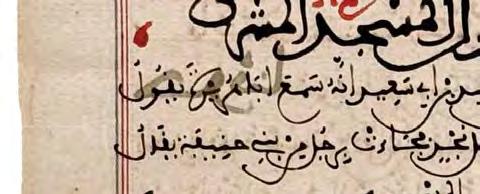 المسجد المشرك
بن ابي سعيد انه سمع ابا هريرة يقول
نجد فجاءت برجل من بني حنيفة يقال